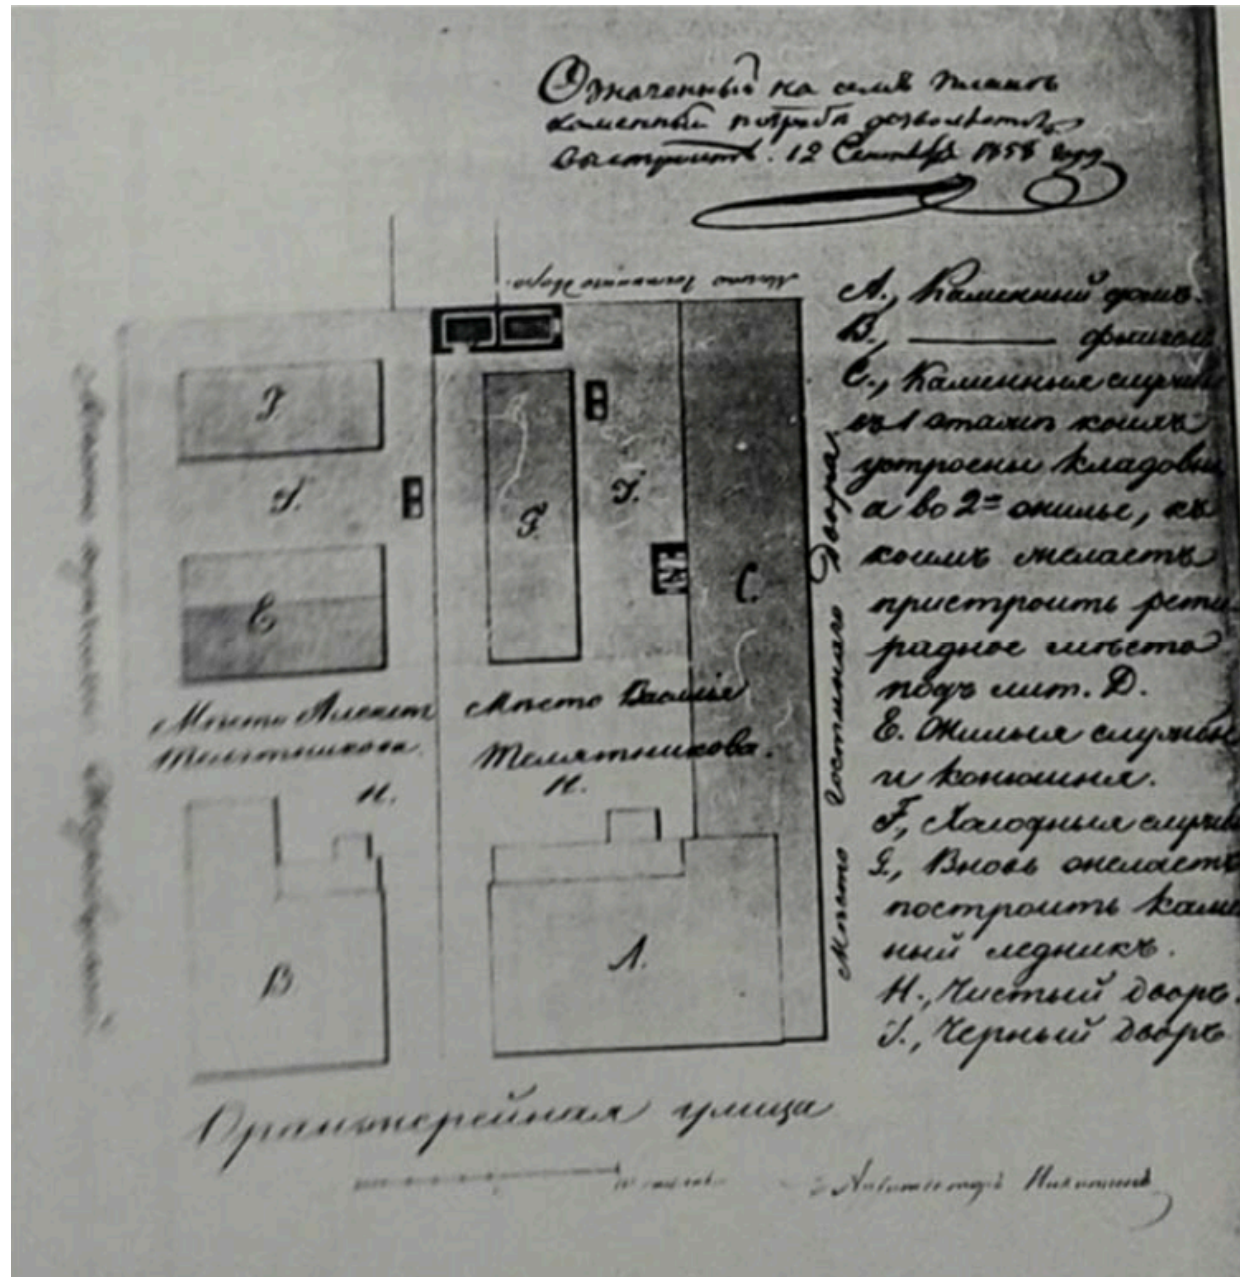 Означенный на семъ планѣ
каменный погребъ дозволяется
выстроить. 12 Сентября 1858 года
Мѣсто Гостиннаго двора.
А., Каменный домъ.
В., ——— флигель
С., Каменныя службы
въ 1 этажѣ коихъ
устроены кладовыя
а во 2= жилье, къ
коимъ желаетъ
пристроить рети-
радное мѣсто
подъ лит. D.
Е. Жилыя службы
и конюшня.
F., Холодныя службы
G., Вновь желаетъ
построить камен
ный ледникъ.
Н., Чистый дворъ.
J., Черный дворъ
Мѣсто Гостинаго Двора
F
J.
G.
J.
E
C.
Мѣсто Алексѣя
Телятникова.
Мѣсто Василія
Телятникова.
Н.
Н.
В
А.
Оранжерейная улица
Архитекторъ